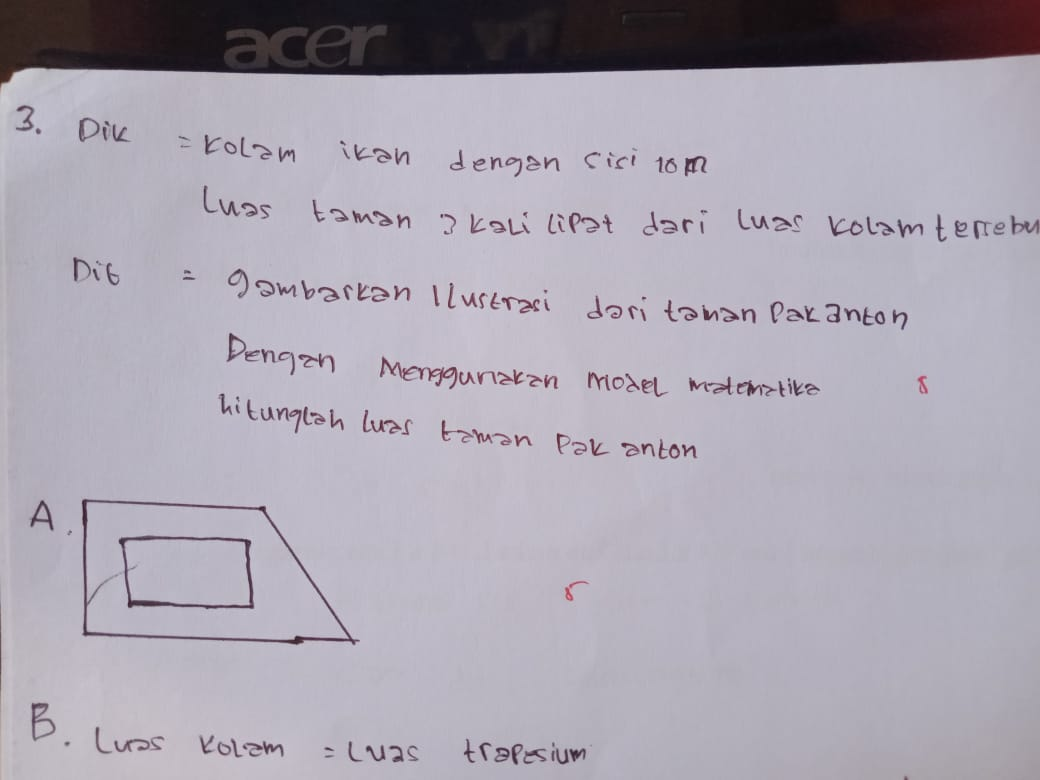 acer
3. Dik = kolam ikan dengan sisi 10 m
Luas taman 3 kali lipat dari luas kolam tersebu
Dit = gambarkan Ilustrasi dari taman Pak anton
Dengan Menggunakan model matematika
hitunglah luas taman Pak anton
A.
B. Luas Kolam = Luas trapesium